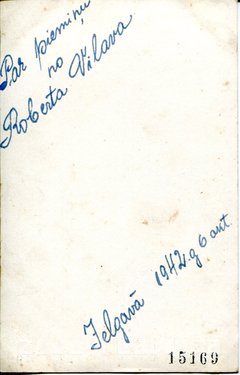 Par piemiņu
no
Roberta Vilava
Jelgavā 1942.g 6 okt.
15169